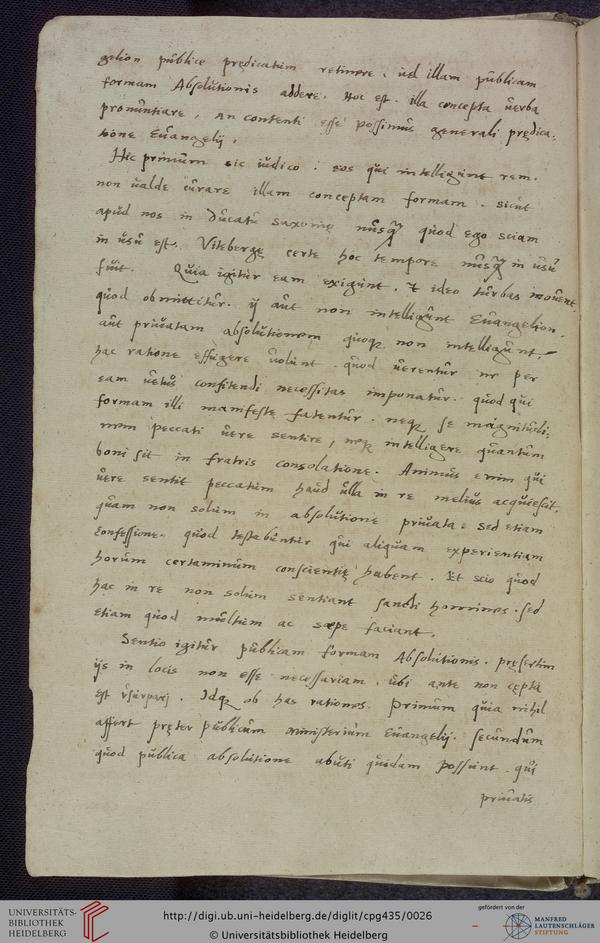 gelion publice prędicatum retinere. uel illam publicam
formam Absolutionis addere. Hoc est. illa concepta uerba
pronuntiare, An contenti esse possimus generali prędica:
tione Euangelij.
Hic primum sic iudico: eos qui intelligunt rem.
non ualde curare illam conceptam formam. sicut
apud nos in ducatu saxonię nusq̃ quod ego sciam
in usu est. Vitebergę certe hoc tempore nusq̃ in usu
fuit. Quia igitur eam exigunt. & ideo turbas mouent
quod obmittitur. ij aut non intelligunt Euangelion.
aut priuatam absolutionem quoqꝫ non intelligunt.
hac ratione effugere uolunt. quod uerentur ne per
eam uetus confitendi necessitas imponatur. quod qui
formam illi manifeste fatentur. neqꝫ se magnitudi:
nem peccati uere sentire, neqꝫ intelligere quantum
boni sit in fratris consolatione. Animus enim qui
uere sentit peccatum haud ulla in re melius acquiescit.
quam non solum in absolutione priuata: sed etiam
confessione. quod testabuntur qui aliquam experientiam
horum certaminum conscientię habent. Et scio quod
hac in re non solum sentiant sancti homines. sed
etiam quod multum ac saepe faciant.
Sentio igitur publicam formam Absolutionis. pręsertim
ijs in locis non esse necessariam. ubi ante non cępta
est usurpari. Idqꝫ ob has rationes. Primum quia nihil
affert pręter publicum ministerium Euangelij. Secundum
quod publica absolutione abuti quidam possunt. qui
priuatis
UNIVERSITÄTS-
BIBLIOTHEK
HEIDELBERG
http://digi.ub.uni-heidelberg.de/diglit/cpg435/0026
© Universitätsbibliothek Heidelberg
gefördert von der
MANFRED
LAUTENSCHLÄGER
STIFTUNG